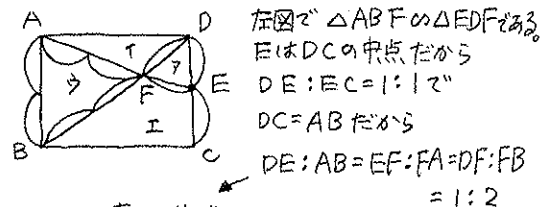 A D
イ
ア
ウ
E
F
エ
B C
左図で △ABF∽△EDFである。
EはDCの中点だから
DE:EC=1:1で
DC=ABだから
DE:AB=EF:FA=DF:FB
=1:2